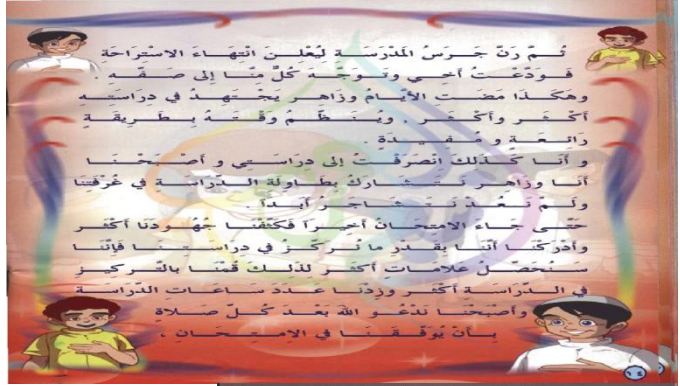 ثُمَّ رَنَّ جَرَسُ المَدْرَسَةِ لِيُعْلِنَ انْتِهَاءَ الاسْتِرَاحَةِ
فَوَدَّعْتُ أخي وتَوَجَّه كُلٌّ مِنَّا إلى صَفِّه .
وهَكَذَا مَضَتِ الأيَّامُ وزَاهِر يَجْتَهِدُ في دِرَاسَتِهِ
أكْثَر وأكْثَر . ويُنَظِّم وقْتَهُ بِطَرِيقَةٍ
رَائِعَةٍ ومُفِيدَةٍ .
و أنَا كَذَلِك انْصَرَفْت إلى دِرَاسَتِي و أصْبَحْنَا
أنَا وزَاهِر نَتَشَارَكُ بِطَاولَة الدِّرَاسَةِ في غُرْفَتِنا
ولَم نَعُدْ نَتَشَاجَر أبَداً .
حَتَّى جَاءَ الامتحَانُ أخيراً فَكَثَّفْنا جُهُودَنَا أكْثَر
وأدْرَكْنَا أنَّنا بِقَدْرِ مَا نُرَكِّزُ في دِرَاسَتِنَا فإنَّنَا
سَنُحَصِّلُ عَلامَات أكْثَر لذَلِكَ قُمْنَا بالتَّركِيزِ
في الدِّرَاسَةِ أكْثَر وزِدْنَا عَدَدَ سَاعَات الدِّرَاسَة
وأصْبَحْنَا نَدْعُو اللهَ بَعْد كُلِّ صَلاةٍ
بِأنْ يُوَفِّقَنَا في الامْتِحَانِ .